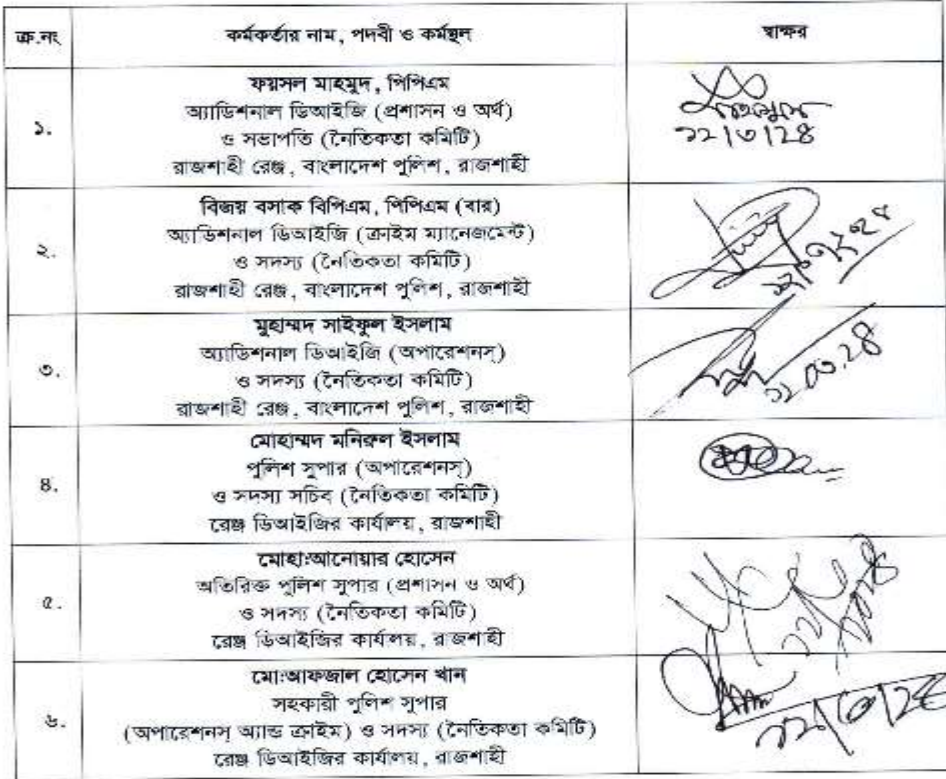 ক্র.নং
কর্মকর্তার নাম, পদবী ও কর্মস্থল
স্বাক্ষর
১.
ফয়সল মাহমুদ, পিপিএম
অ্যাডিশনাল ডিআইজি (প্রশাসন ও অর্থ)
ও সভাপতি (নৈতিকতা কমিটি)
রাজশাহী রেঞ্জ, বাংলাদেশ পুলিশ, রাজশাহী
২.
বিজয় বসাক বিপিএম, পিপিএম (বার)
অ্যাডিশনাল ডিআইজি (ক্রাইম ম্যানেজমেন্ট)
ও সদস্য (নৈতিকতা কমিটি)
রাজশাহী রেঞ্জ, বাংলাদেশ পুলিশ, রাজশাহী
৩.
মুহাম্মদ সাইফুল ইসলাম
অ্যাডিশনাল ডিআইজি (অপারেশনস্)
ও সদস্য (নৈতিকতা কমিটি)
রাজশাহী রেঞ্জ, বাংলাদেশ পুলিশ, রাজশাহী
৪.
মোহাম্মদ মনিরুল ইসলাম
পুলিশ সুপার (অপারেশনস্)
ও সদস্য সচিব (নৈতিকতা কমিটি)
রেঞ্জ ডিআইজির কার্যালয়, রাজশাহী
৫.
মোহা:আনোয়ার হোসেন
অতিরিক্ত পুলিশ সুপার (প্রশাসন ও অর্থ)
ও সদস্য (নৈতিকতা কমিটি)
রেঞ্জ ডিআইজির কার্যালয়, রাজশাহী
৬.
মো:আফজাল হোসেন খান
সহকারী পুলিশ সুপার
(অপারেশনস্ অ্যান্ড ক্রাইম) ও সদস্য (নৈতিকতা কমিটি)
রেঞ্জ ডিআইজির কার্যালয়, রাজশাহী